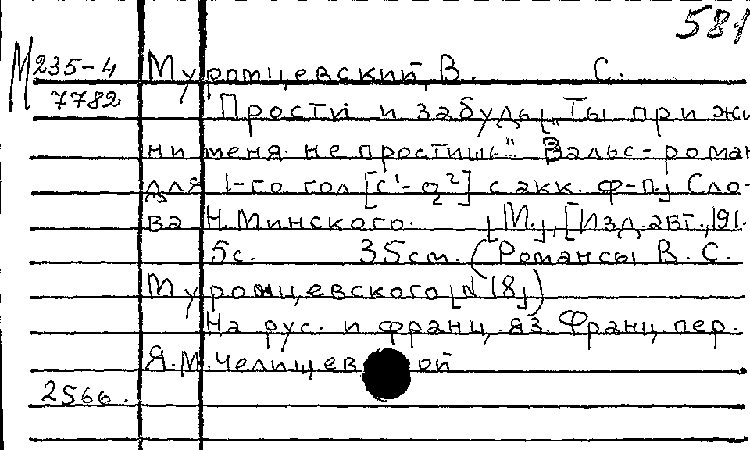 581
М 235-4 Муромцевский, В. С.
7782 Прости и забудь! „Ты при жи
ни меня не простишь" Вальс-роман
для 1-го гол [c¹-g²] с акк. ф-п. Сло-
ва Н. Минского. [М.], [Изд. авт., 191.
5с. 35см. (Романсы В. С.
Муромцевского [№ 18])
На рус. и франц. яз. Франц. пер.
Я.М. Челищев ой
2566.